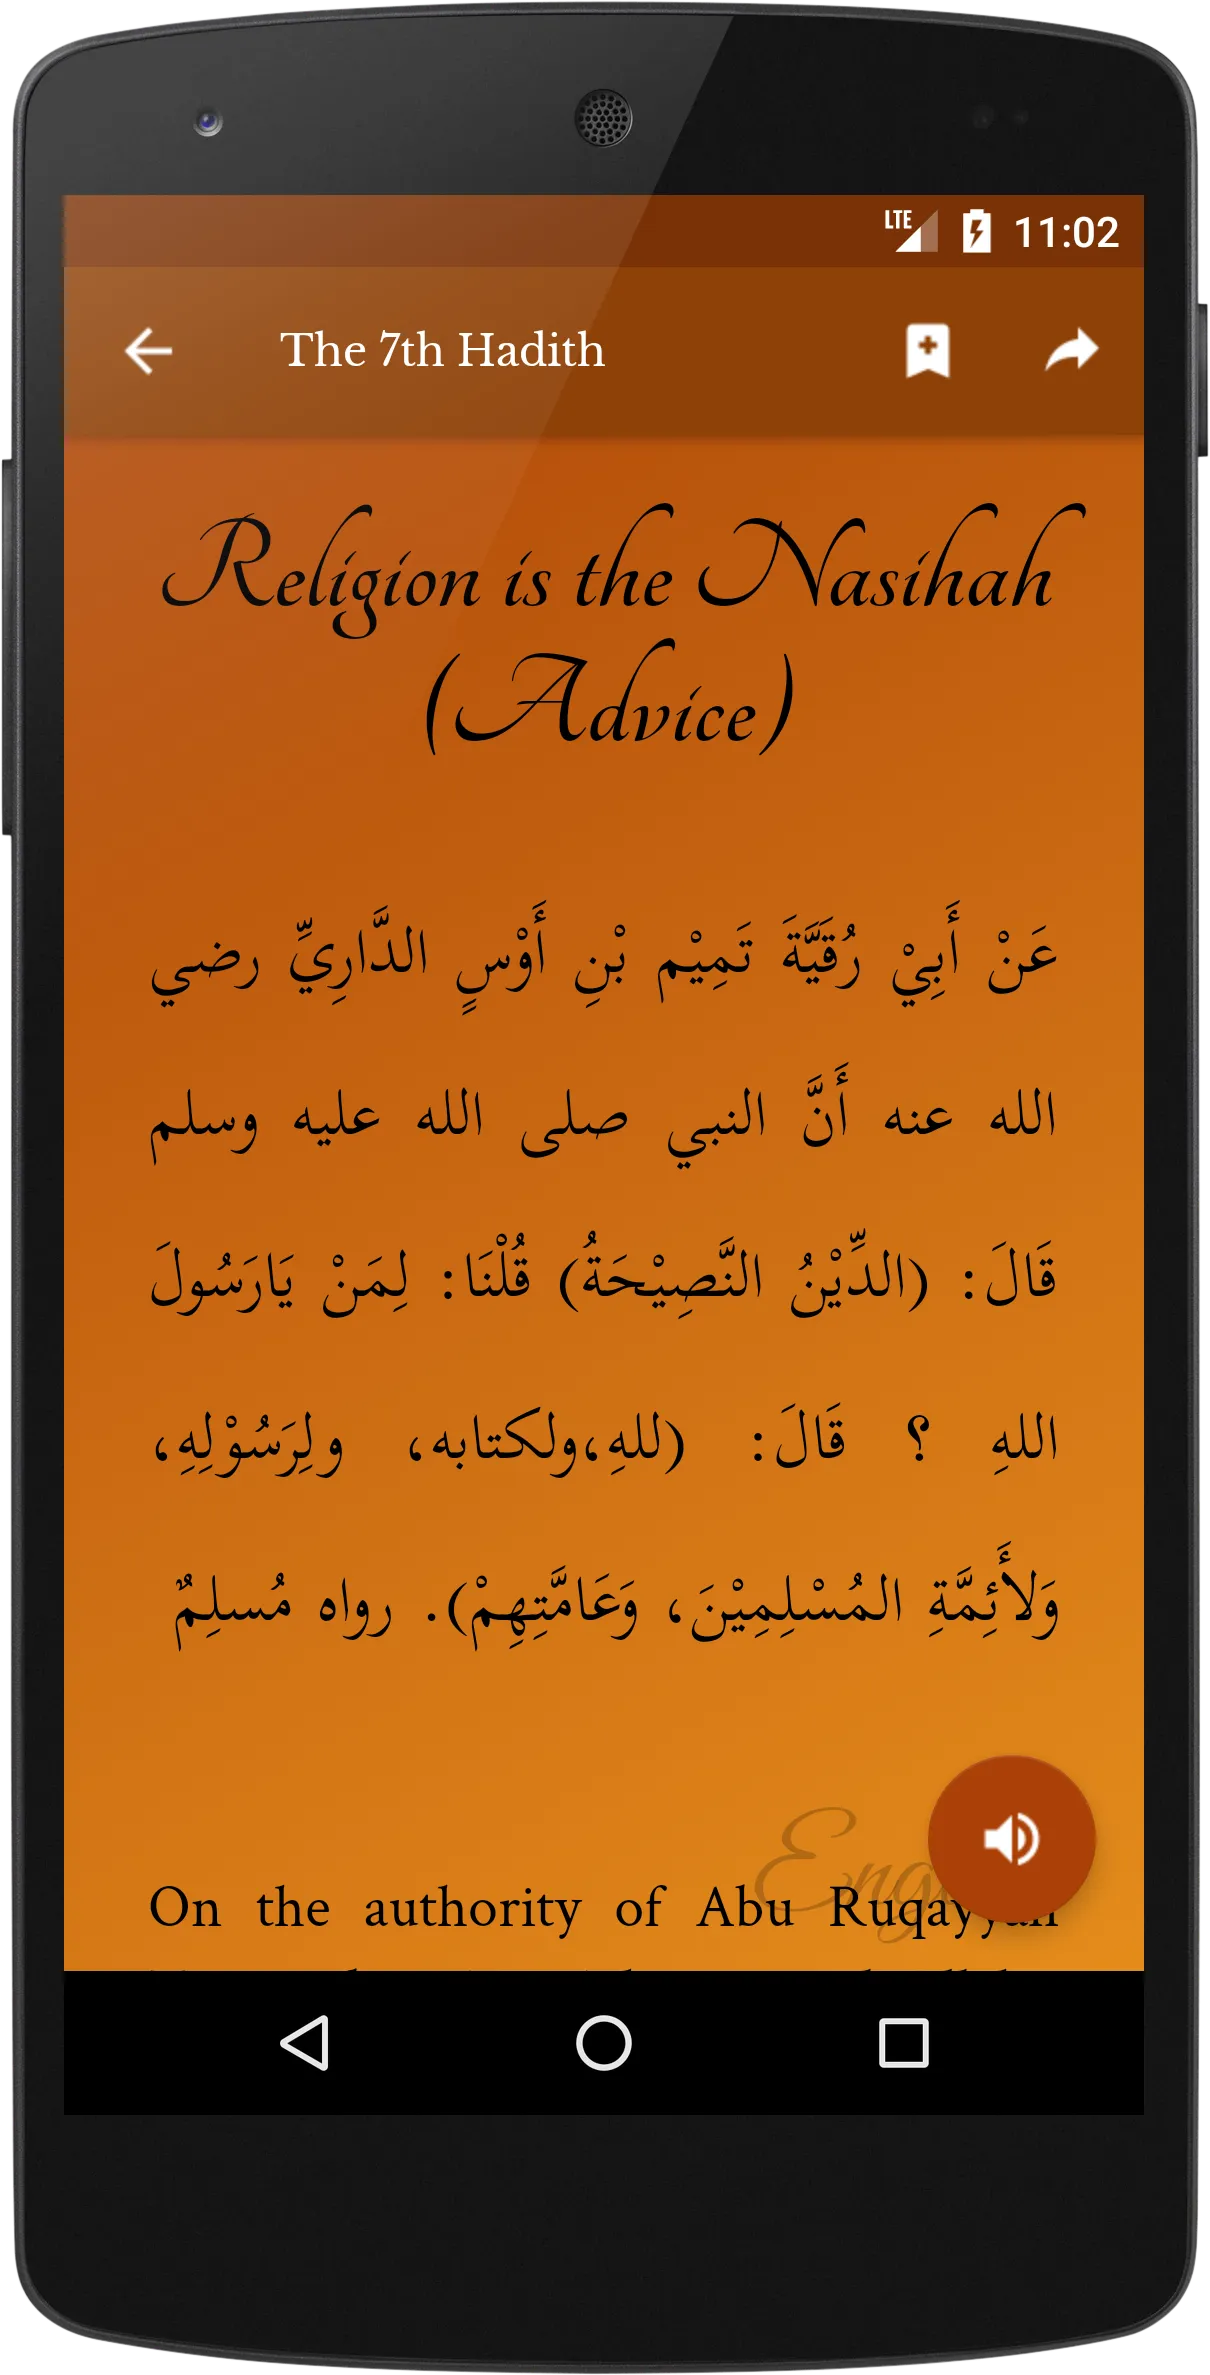 LTE 11:02
The 7th Hadith
Religion is the Nasihah
(Advice)
عَنْ أَبِيْ رُقَيَّةَ تَمِيْم بْنِ أَوْسٍ الدَّارِيِّ رضي
الله عنه أَنَّ النبي صلى الله عليه وسلم
قَالَ: (الدِّيْنُ النَّصِيْحَةُ) قُلْنَا: لِمَنْ يَارَسُولَ
اللهِ ؟ قَالَ: (للهِ،ولكتابه، ولِرَسُوْلِهِ،
وَلأَئِمَّةِ المُسْلِمِيْنَ، وَعَامَّتِهِمْ). رواه مُسلِمٌ
On the authority of Abu